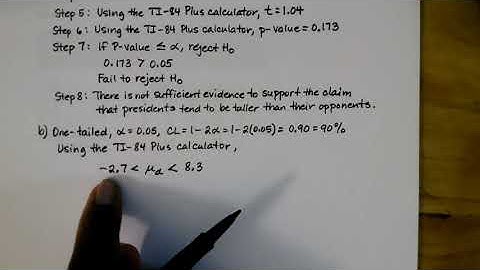 Step 5: Using the TI-84 Plus calculator, t=1.04
Step 6: Using the TI-84 Plus calculator, p-value = 0.173
Step 7: If P-value ≤ α, reject H₀
0.173 > 0.05
Fail to reject H₀
Step 8: There is not sufficient evidence to support the claim
that presidents tend to be taller than their opponents.
b) One-tailed, α = 0.05, CL = 1-2α = 1-2(0.05) = 0.90 = 90%
Using the TI-84 Plus calculator,
-2.7 < μd < 8.3